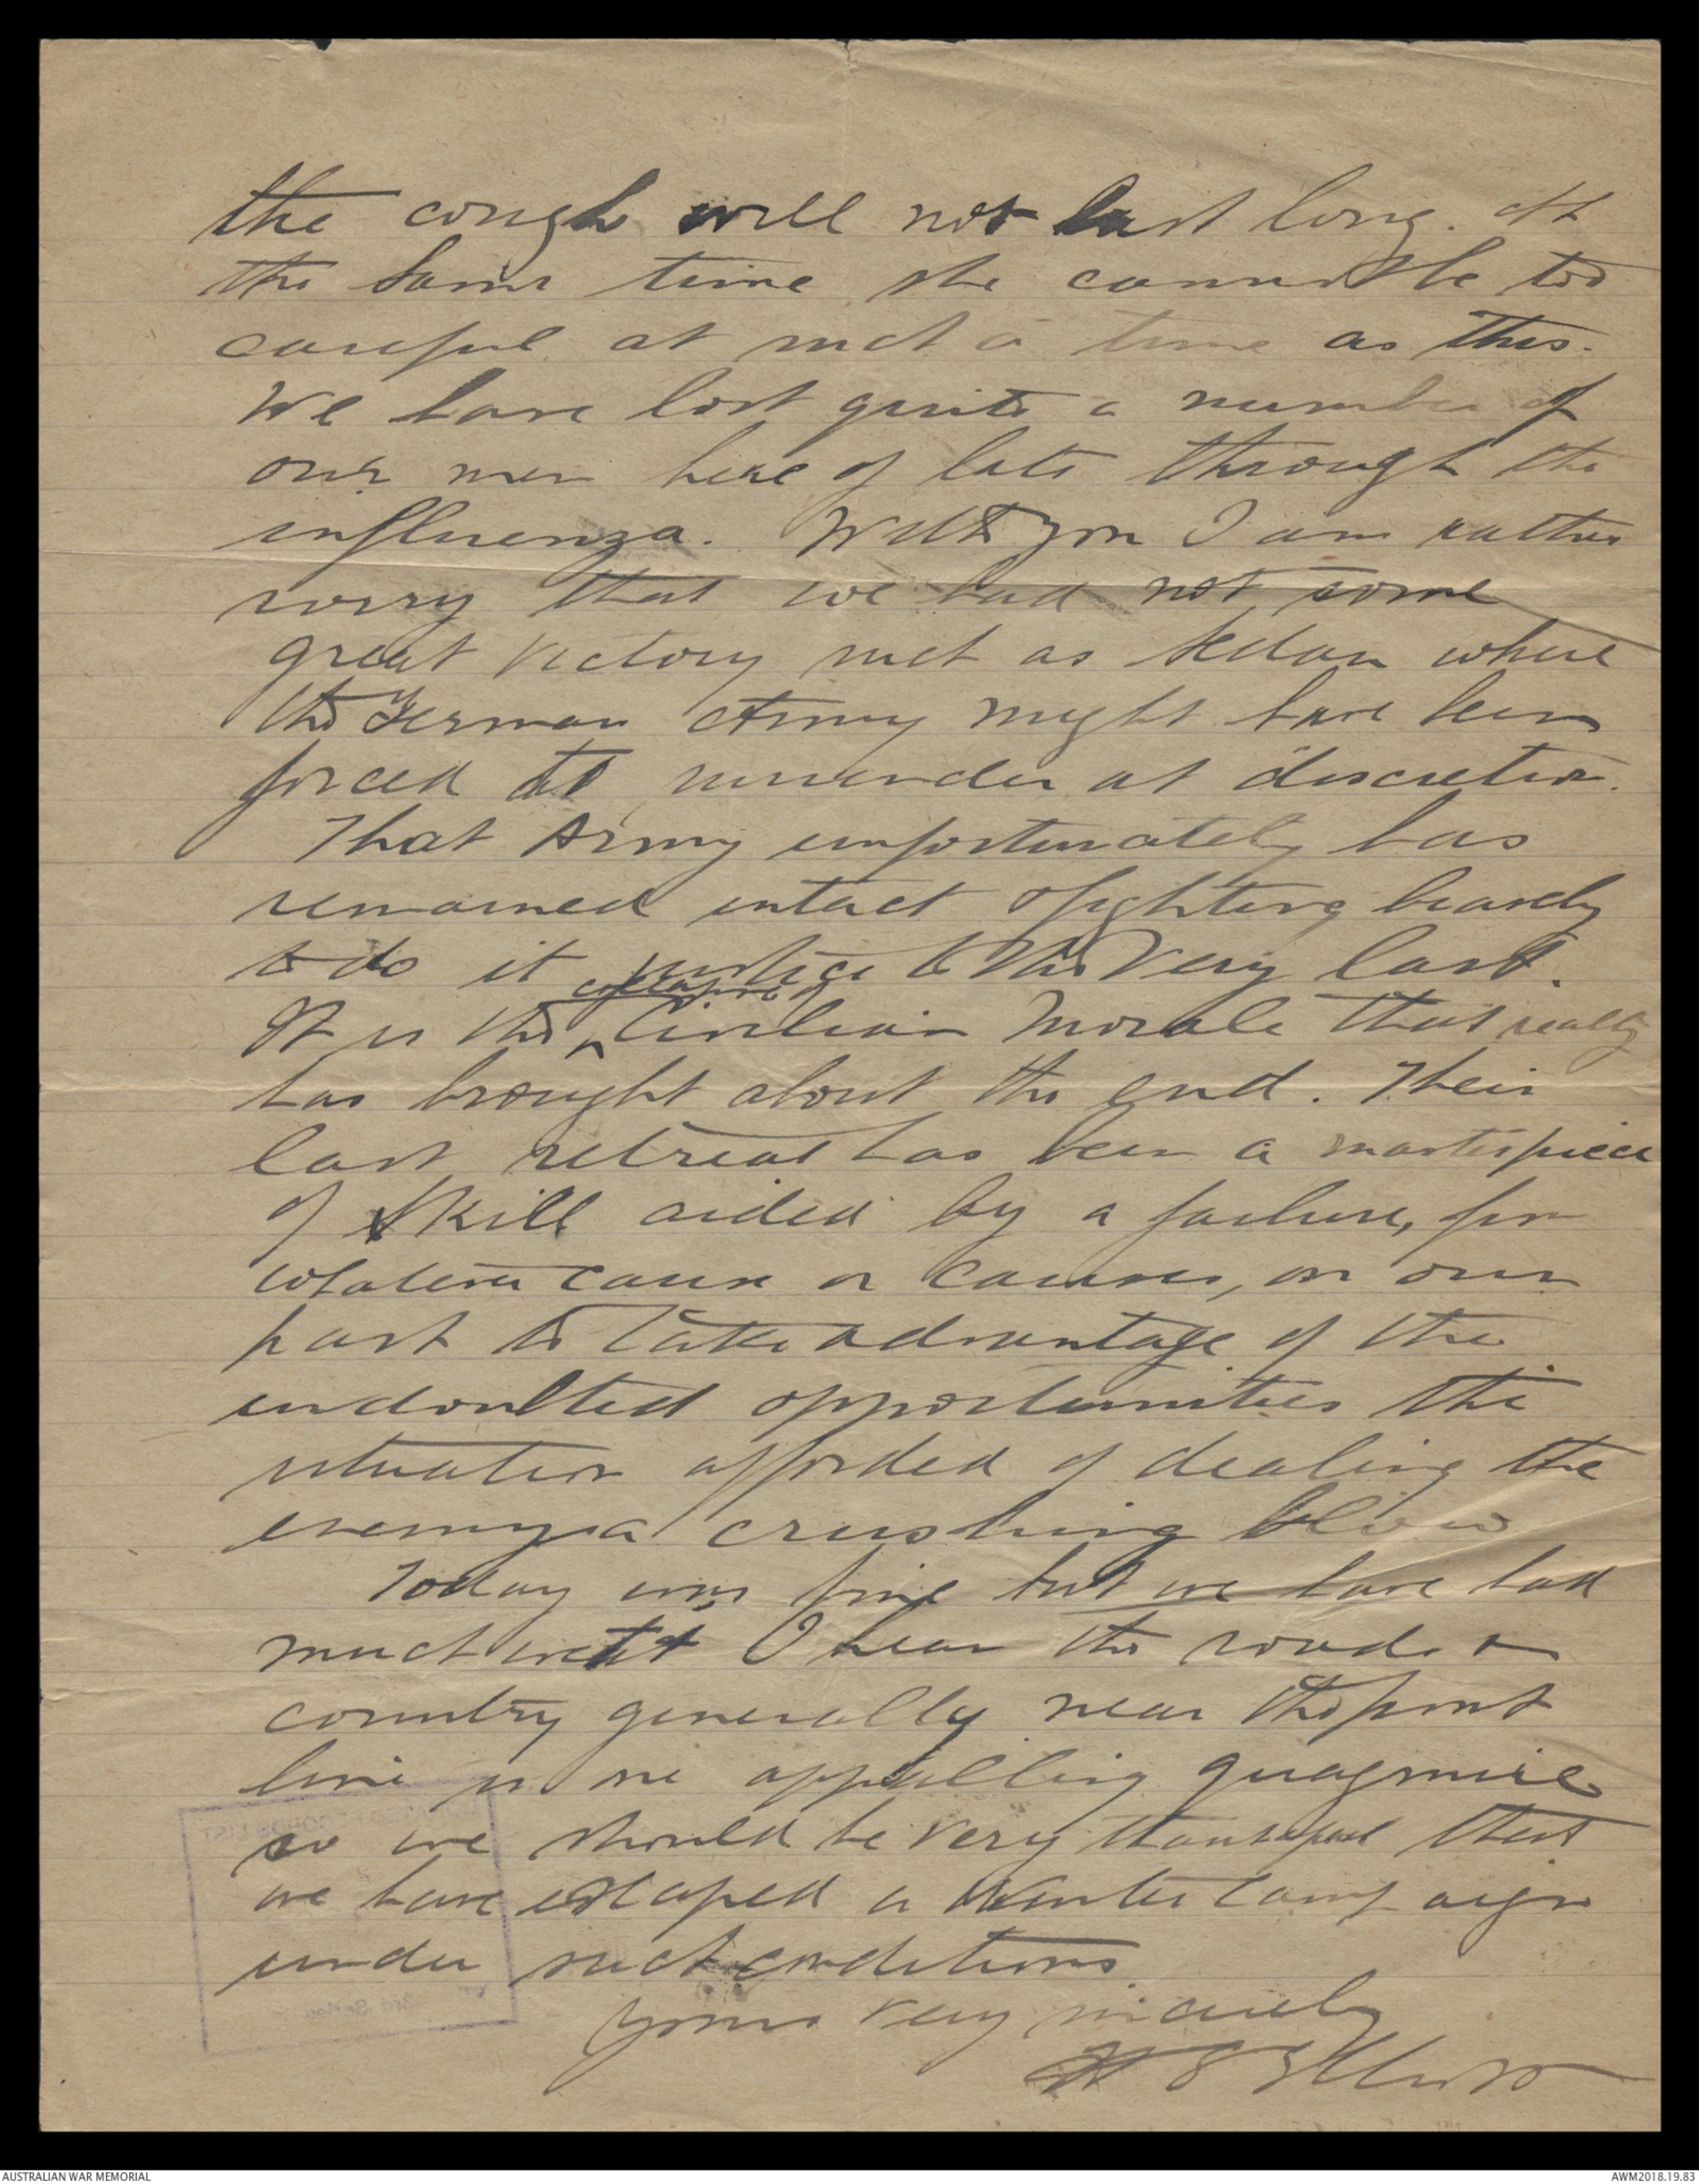 the cough will not last long. At
the same time she cannot be too
careful at such a time as this.
We have lost quite a number of
our men here of late through the
influenza. With you I am rather
sorry that we had not some
great victory such as Sedan where
the German Army might have been
forced to surrender at discretion.
That Army unfortunately has
remained intact & fighting bravely
to do it justice to the very last.
collapse of
It is the ^ Civilian Morale that really
has brought about the end. Their
last retreat has been a masterpiece
of skill aided by a failure, for
whatever cause or causes, on our
part to take advantage of the
undoubted opportunities the
situation afforded of dealing the
enemy a crushing blow
Today was fine but we have had
much wet & I hear the roads &
country generally near the front
line is one appalling quagmire
so we should be very thankful that
we have escaped a winter campaign
under such conditions.
Yours very sincerely
H E Elliott
AUSTRALIAN WAR MEMORIAL
AWM2018.19.83